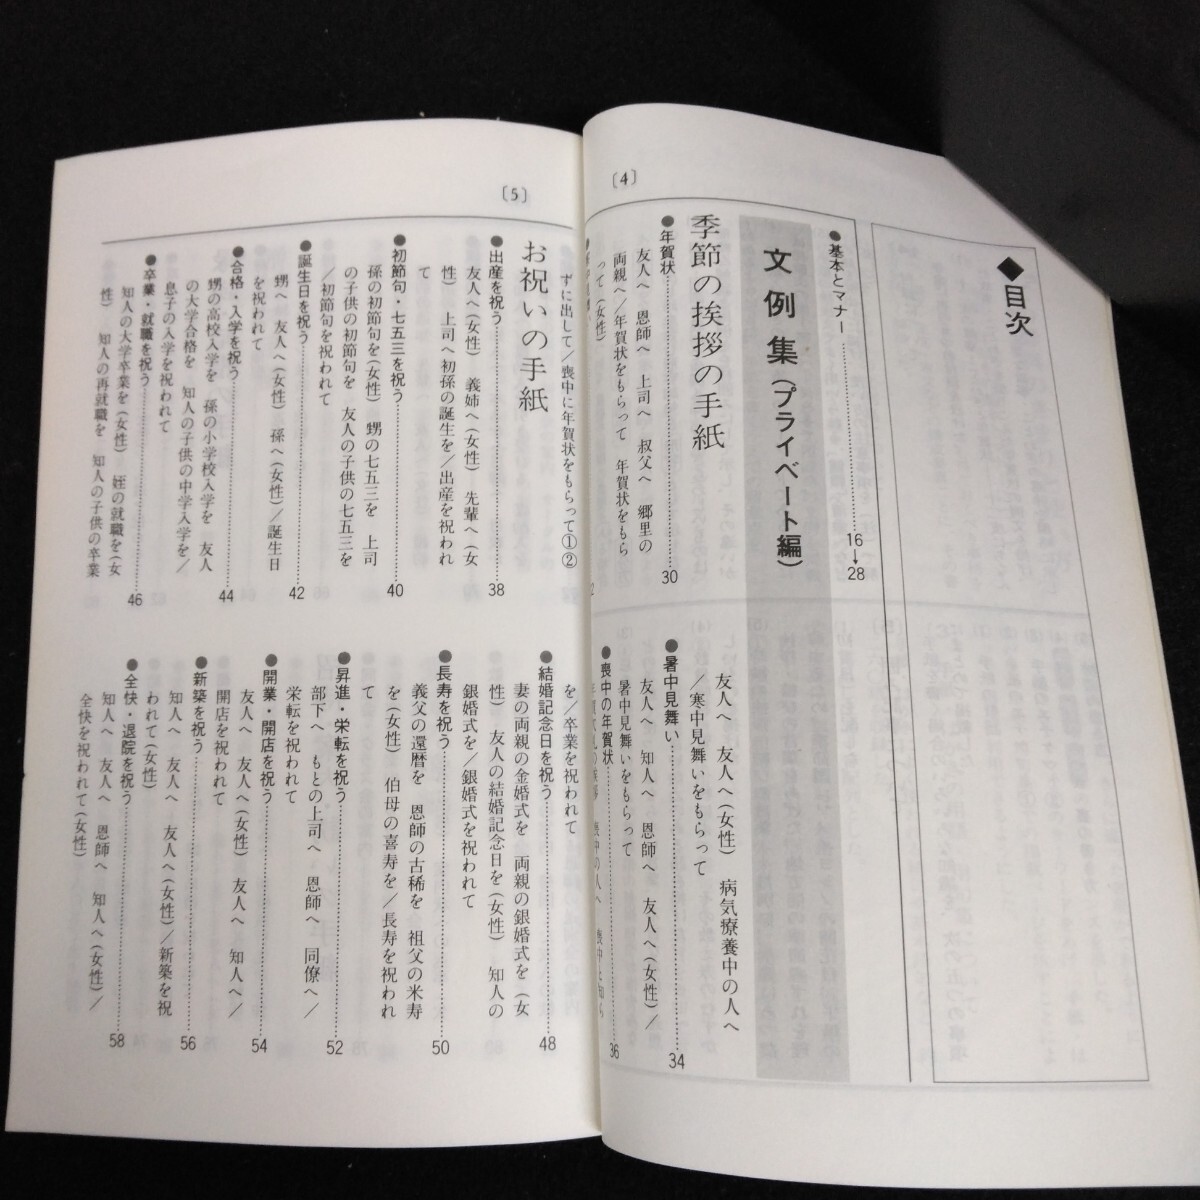 〔4〕
◆目次
●基本とマナー……16→28
文例集(プライベート編)
季節の挨拶の手紙
●年賀状……30
友人へ　恩師へ　上司へ　叔父へ　郷里の
両親へ／年賀状をもらって　年賀状をもら
って(女性)
友人へ　友人へ(女性)　病気療養中の人へ
／寒中見舞いをもらって
●暑中見舞い……34
友人へ　知人へ　恩師へ　友人へ(女性)／
暑中見舞いをもらって
●喪中の年賀状……36
〔5〕
ずに出して／喪中に年賀状をもらって①②
お祝いの手紙
●出産を祝う……38
友人へ(女性)　義姉へ(女性)　先輩へ(女
性)　上司へ初孫の誕生を／出産を祝われ
て
●初節句・七五三を祝う……40
孫の初節句を(女性)　甥の七五三を　上司
の子供の初節句を　友人の子供の七五三を
／初節句を祝われて
●誕生日を祝う……42
甥へ　友人へ(女性)　孫へ(女性)／誕生日
を祝われて
●合格・入学を祝う……44
甥の高校入学を　孫の小学校入学を　友人
の大学合格を　知人の子供の中学入学を／
息子の入学を祝われて
●卒業・就職を祝う……46
知人の大学卒業を(女性)　姪の就職を(女
性)　知人の再就職を　知人の子供の卒業
を／卒業を祝われて
●結婚記念日を祝う……48
妻の両親の金婚式を　両親の銀婚式を(女
性)　友人の結婚記念日を(女性)　知人の
銀婚式を／銀婚式を祝われて
●長寿を祝う……50
義父の還暦を　恩師の古稀を　祖父の米寿
を(女性)　伯母の喜寿を／長寿を祝われ
て
●昇進・栄転を祝う……52
部下へ　もとの上司へ　恩師へ　同僚へ／
栄転を祝われて
●開業・開店を祝う……54
友人へ　友人へ(女性)　友人へ　知人へ／
開店を祝われて
●新築を祝う……56
知人へ　友人へ　友人へ(女性)／新築を祝
われて(女性)
●全快・退院を祝う……58
知人へ　友人へ　恩師へ　知人へ(女性)／
全快を祝われて(女性)